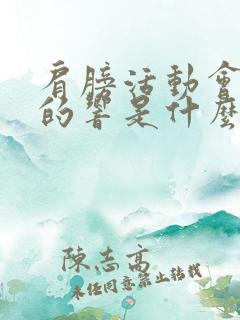 肩膀活動會
的響是什麼
陳志高
未經同意禁止轉載